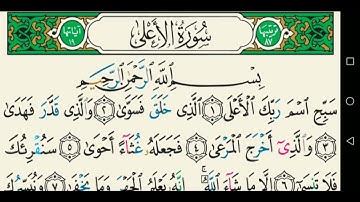 ترتيبها ٨٧ سُورَةُ الأَعْلَى آياتها ١٩
بِسْمِ اللَّهِ الرَّحْمَٰنِ الرَّحِيمِ
سَبِّحِ اسْمَ رَبِّكَ الْأَعْلَى ١ الَّذِي خَلَقَ فَسَوَّىٰ ٢ وَالَّذِي قَدَّرَ فَهَدَىٰ
٣ وَالَّذِي أَخْرَجَ الْمَرْعَىٰ ٤ فَجَعَلَهُ غُثَاءً أَحْوَىٰ ٥ سَنُقْرِئُكَ
فَلَا تَنسَىٰ ٦ إِلَّا مَا شَاءَ اللَّهُ إِنَّهُ يَعْلَمُ الْجَهْرَ وَمَا يَخْفَىٰ ٧ وَنُيَسِّرُكَ